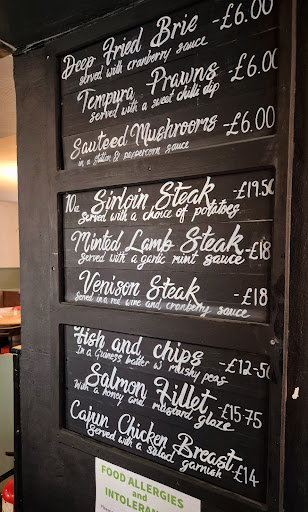 Deep Fried Brie -£6.00
served with cranberry sauce
Tempura Prawns -£6.00
served with a sweet chilli dip
Sauteed Mushrooms -£6.00
in a stilton & peppercorn sauce
10oz Sirloin Steak -£19.50
Served with a choice of potatoes
Minted Lamb Steak -£18
Served with a garlic mint sauce
Venison Steak -£18
Served in a red wine and cranberry sauce
Fish and chips -£12-50
In a Guiness batter w mushy peas
Salmon Fillet -£15.75
With a honey and mustard glaze
Cajun Chicken Breast -£14
Served with a salad garnish
FOOD ALLERGIES
and